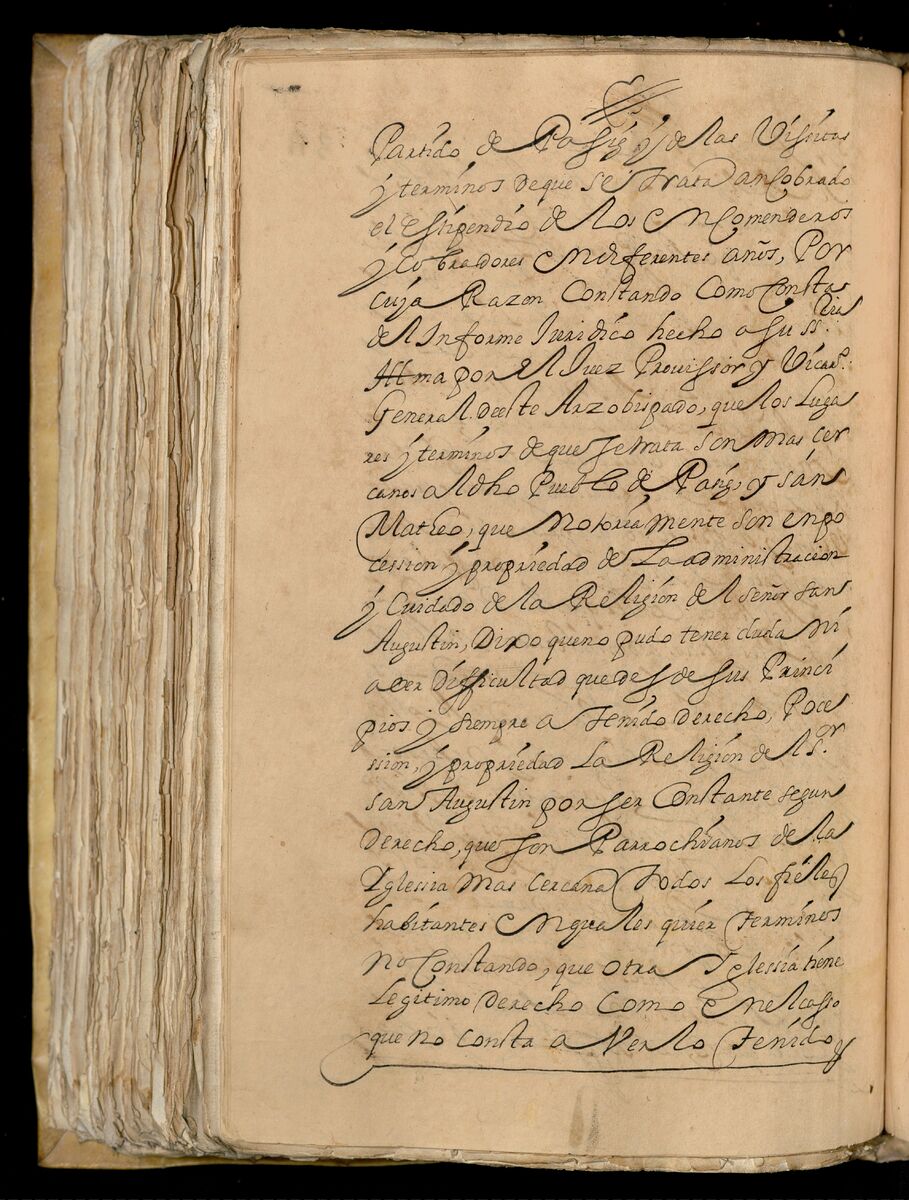 Partido de Passig y de las Visitas
y terminos de que se trata an Cobrado
el Estipendio de los Encomenderos
y Cobradores En diferentes años, Por
cuya Razon Constando Como Consta
del Informe Juridico hecho a su SS.ria
Illma por El Juez Provissor y Vicar.o
General deeste Arzobispado, que los Luga
res y terminos de que se trata son mas cer
canos al dho Pueblo de Pasig, y San
Matheo, que Notoria mente son en po
cession y propriedad de La administracion
y Cuidado de la Religion del Señor san
Augustin, Dixo que no pudo tener duda ni
a cer Difficultad que desde sus Princi
pios y siempre a tenido derecho, Poce
ssion, y propriedad La Religion del S.or
san Augustin por ser Constante segun
Derecho, que son Parrochianos de la
Iglessia mas cercana Todos Los fieles
habitantes En quales quier Terminos
No Constando, que otra Iglessia tiene
Legitimo derecho Como En el casso
que no consta a Verlo Tenido y